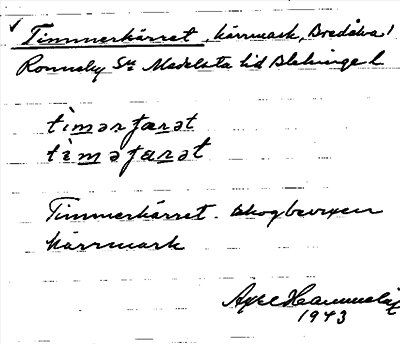 ✓ Timmerkärret, kärrmark, Bredåkra
Ronneby Sn Medelsta hd Blekinge l
tìmərʃærət
tìməʃærət
Timmerkärret. Skogbevuxen
kärrmark
Axel
1943